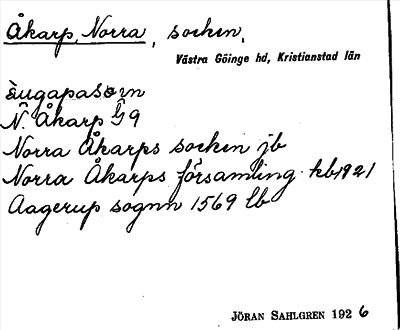 Åkarp, Norra, socken,
Västra Göinge hd, Kristianstad län
N. Åkarp G9
Norra Åkarps socken jb
Norra Åkarps församling kb 1921
Aagerup sognn 1569 lb
JÖRAN SAHLGREN 1926